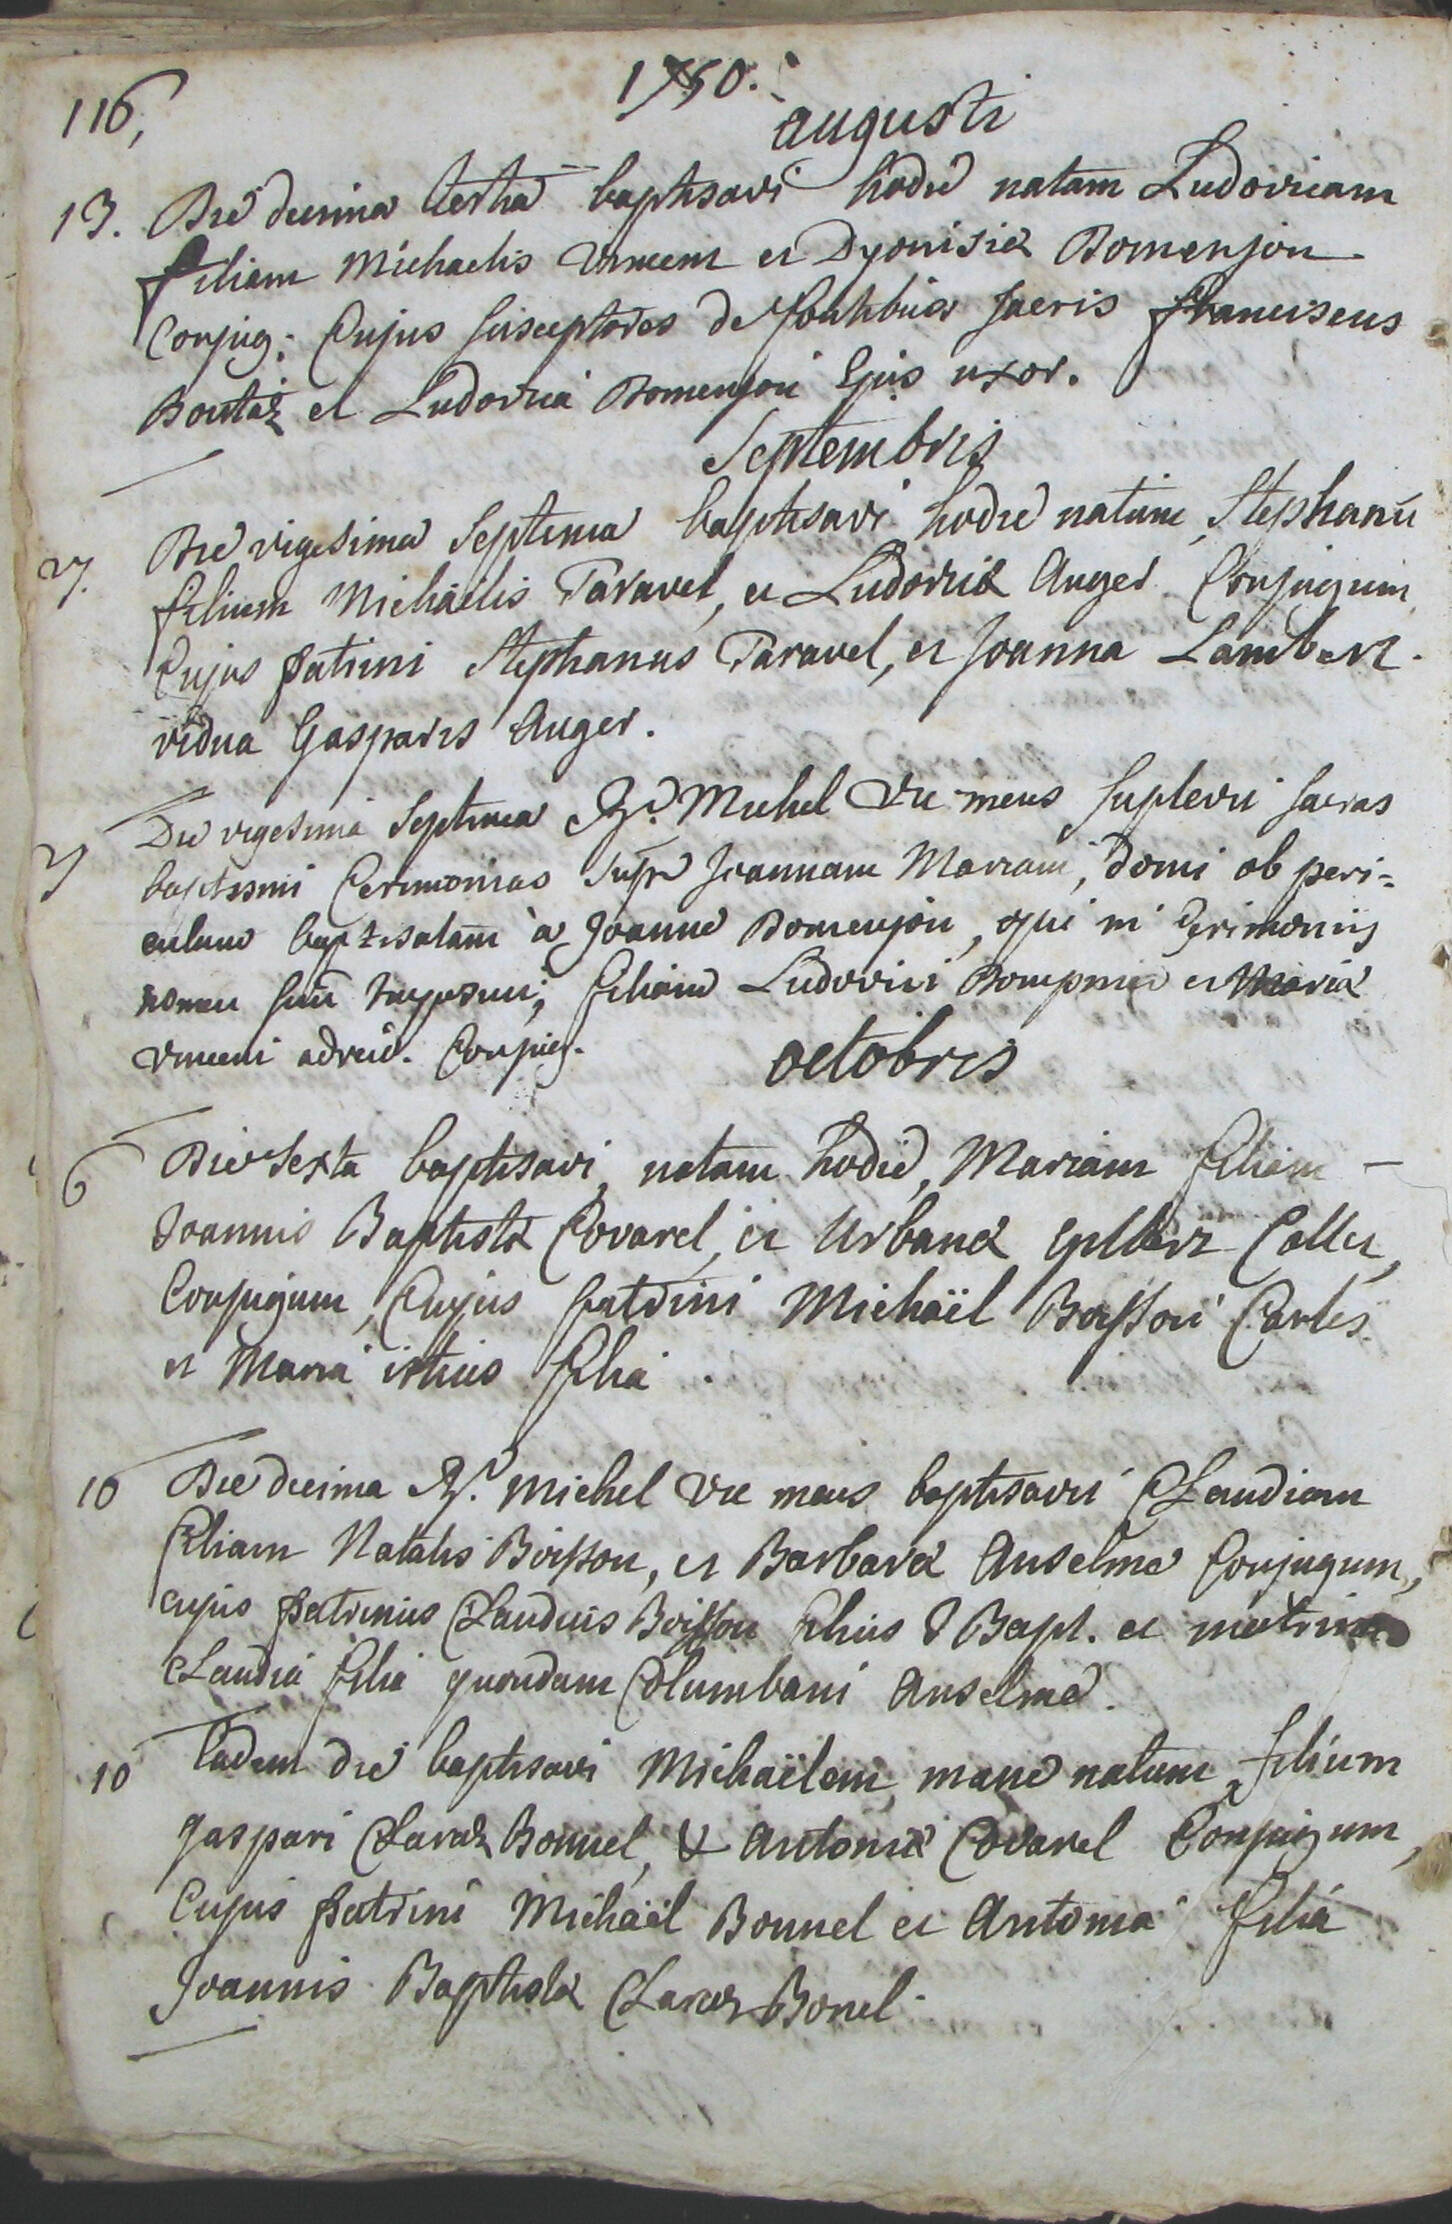 116,
1750.
augusti
13. Die decima tertia baptisavi hodie natam Ludovicam
filiam Michaelis Vincent et Dyonisiæ Domenjon
Conjug: Cujus susceptores de fontibus sacris franciscus
Boutaz et Ludovica Domenjon Ejus uxor.
Septembris
27. Die vigesima septima baptisavi hodie natum, Stephanū
filium Michaëlis Taravel, et Ludovicæ Auger Conjugum,
Cujus patrini Stephanus Taravel, et Joanna Lambert
vidua Gasparis Auger.
27 Die vigesima septima Rd. Michel Vic meus suplevit sacras
baptismi Cerimonias supr Joannam Mariam, domi ob peri=
culum baptisatam à Joanne Domenjon, qui in Cerimoniis
nomen suū imposuit, filiam Ludovici et Mariæ
Vincent Conjug.
octobris
6 Die sexta baptisavi, natam hodie, Mariam filiam
Joannis Baptistæ Covarel, et Urbanæ Collet,
Conjugum, Cujus patrini Michaël Boisson Carles
et Maria istius filia.
10 Die decima Rd. Michel Vic meus baptisavit Claudiam
filiam Natalis Boisson, et Barbaræ Anselme Conjugum,
cujus patrinus Claudius Boisson filius J Bapt. et matrina
Claudia filia quondam Columbani Anselme.
10 Eadem die baptisavi Michaëlem, mane natum, filium
Gaspari Claraz Bonnel, & Antoniæ Covarel Conjugum,
Cujus patrini Michaël Bonnel et Antonia filia
Joannis Baptistæ Claraz Bonel.